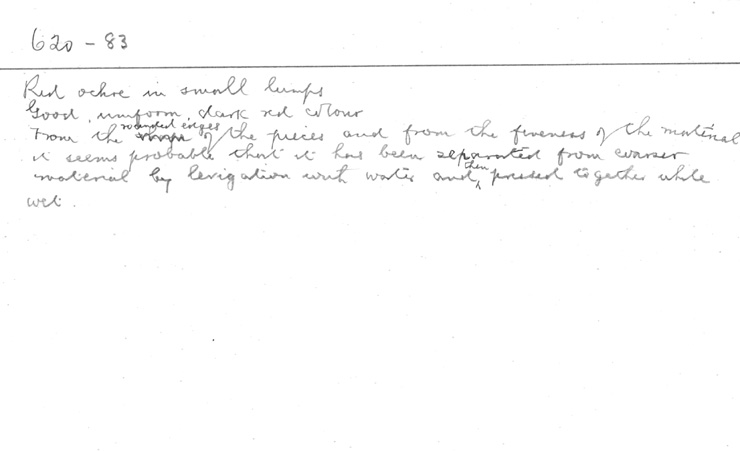 620-83
Red ochre in small lumps
Good, uniform, dark red colour
From the rounded edges of the pieces and from the fineness of the material
it seems probable that it has been separated from coarser
material by levigation with water and then pressed together while
wet.